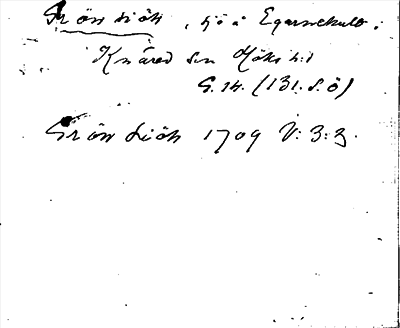 Grön siöh, sjö å Egarnekulb.
Knäred sn Höks hd
G. 14. (131. S. Ö)
Grön Siöh 1709 V: 3: 3.